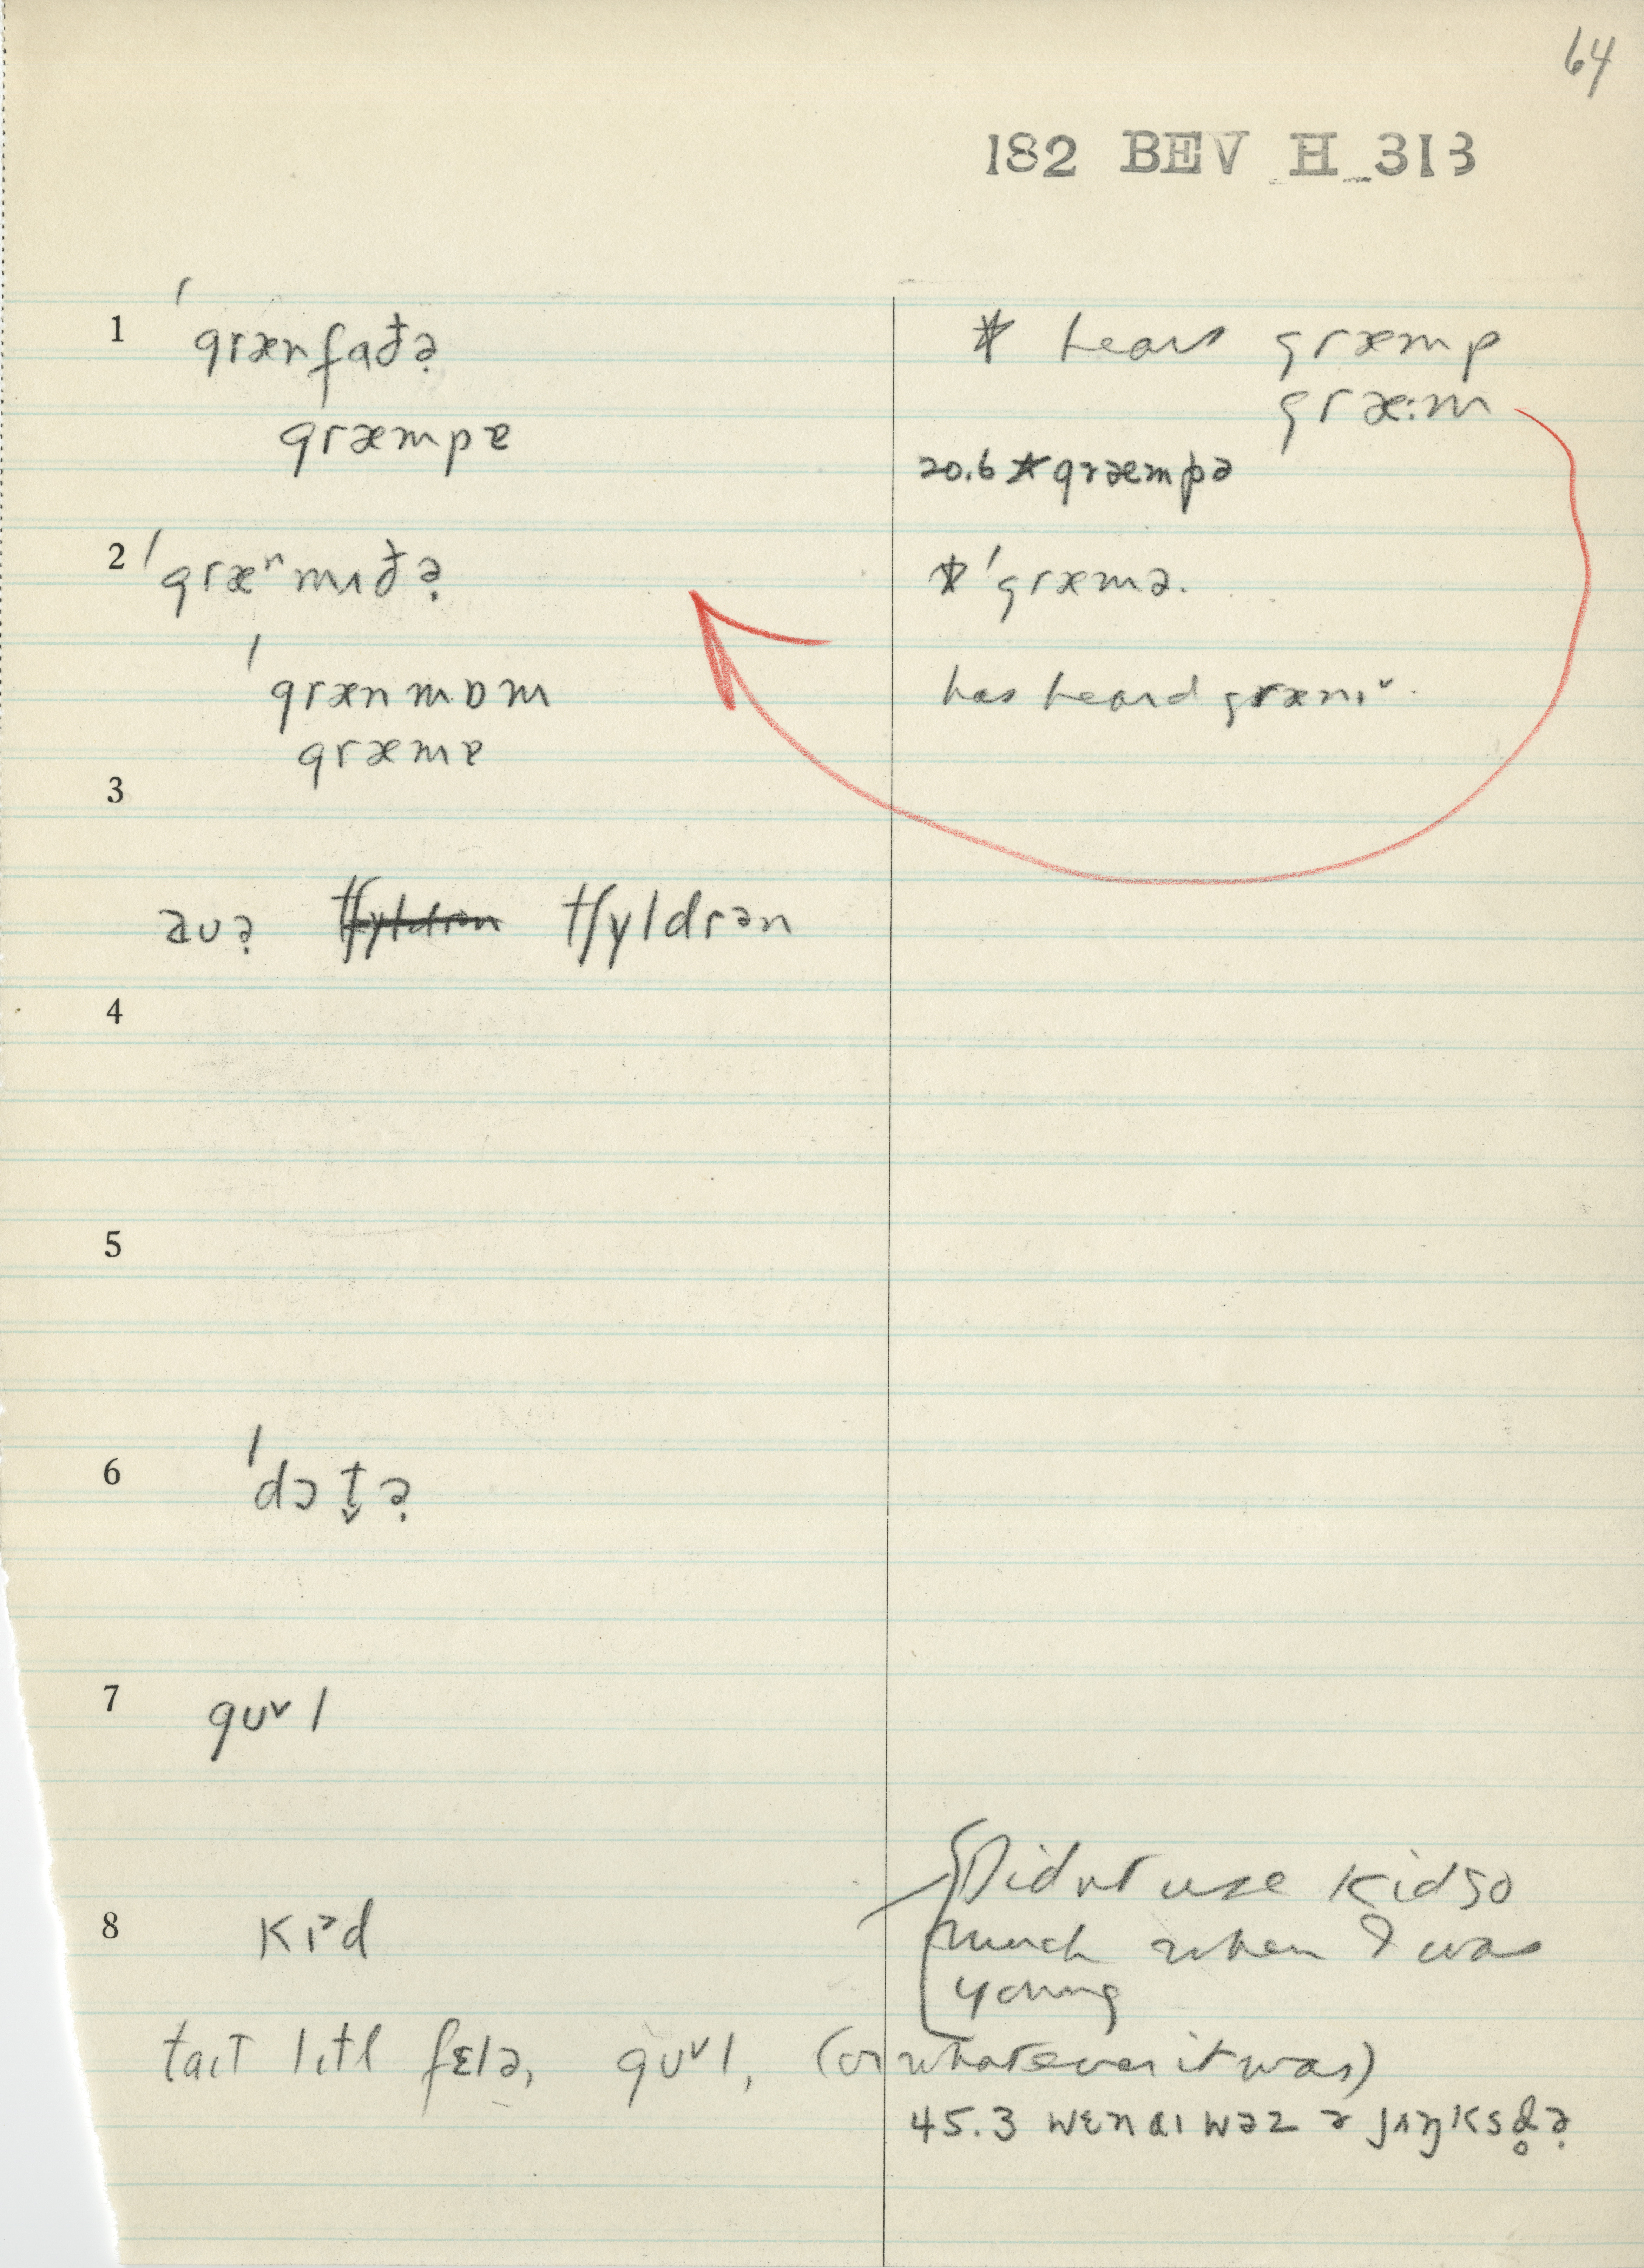 64
182 BEV H_313
1 ˈgrænfað̵ə̣ * hears græmp
græmpɐ græ:m
20.6 *græmpə
2 ˈgræⁿmʌð̵ə̣ * ˈgræmə.
ˈgrænmɒm has heard grænɪˇ.
græmɐ
3
aʊə̣ tʃyldrən tʃyldrən
4
5
6 ˈdɔt̬ə̣
7 gʊˇl
8 kɪᵊd Didnt use kid so
much when I was
young
taɪt lɪtl fɛlə, gʊˇl, (or whatever it was)
45.3 wɛn aɪ wəz ə jʌŋksd̥ə̣